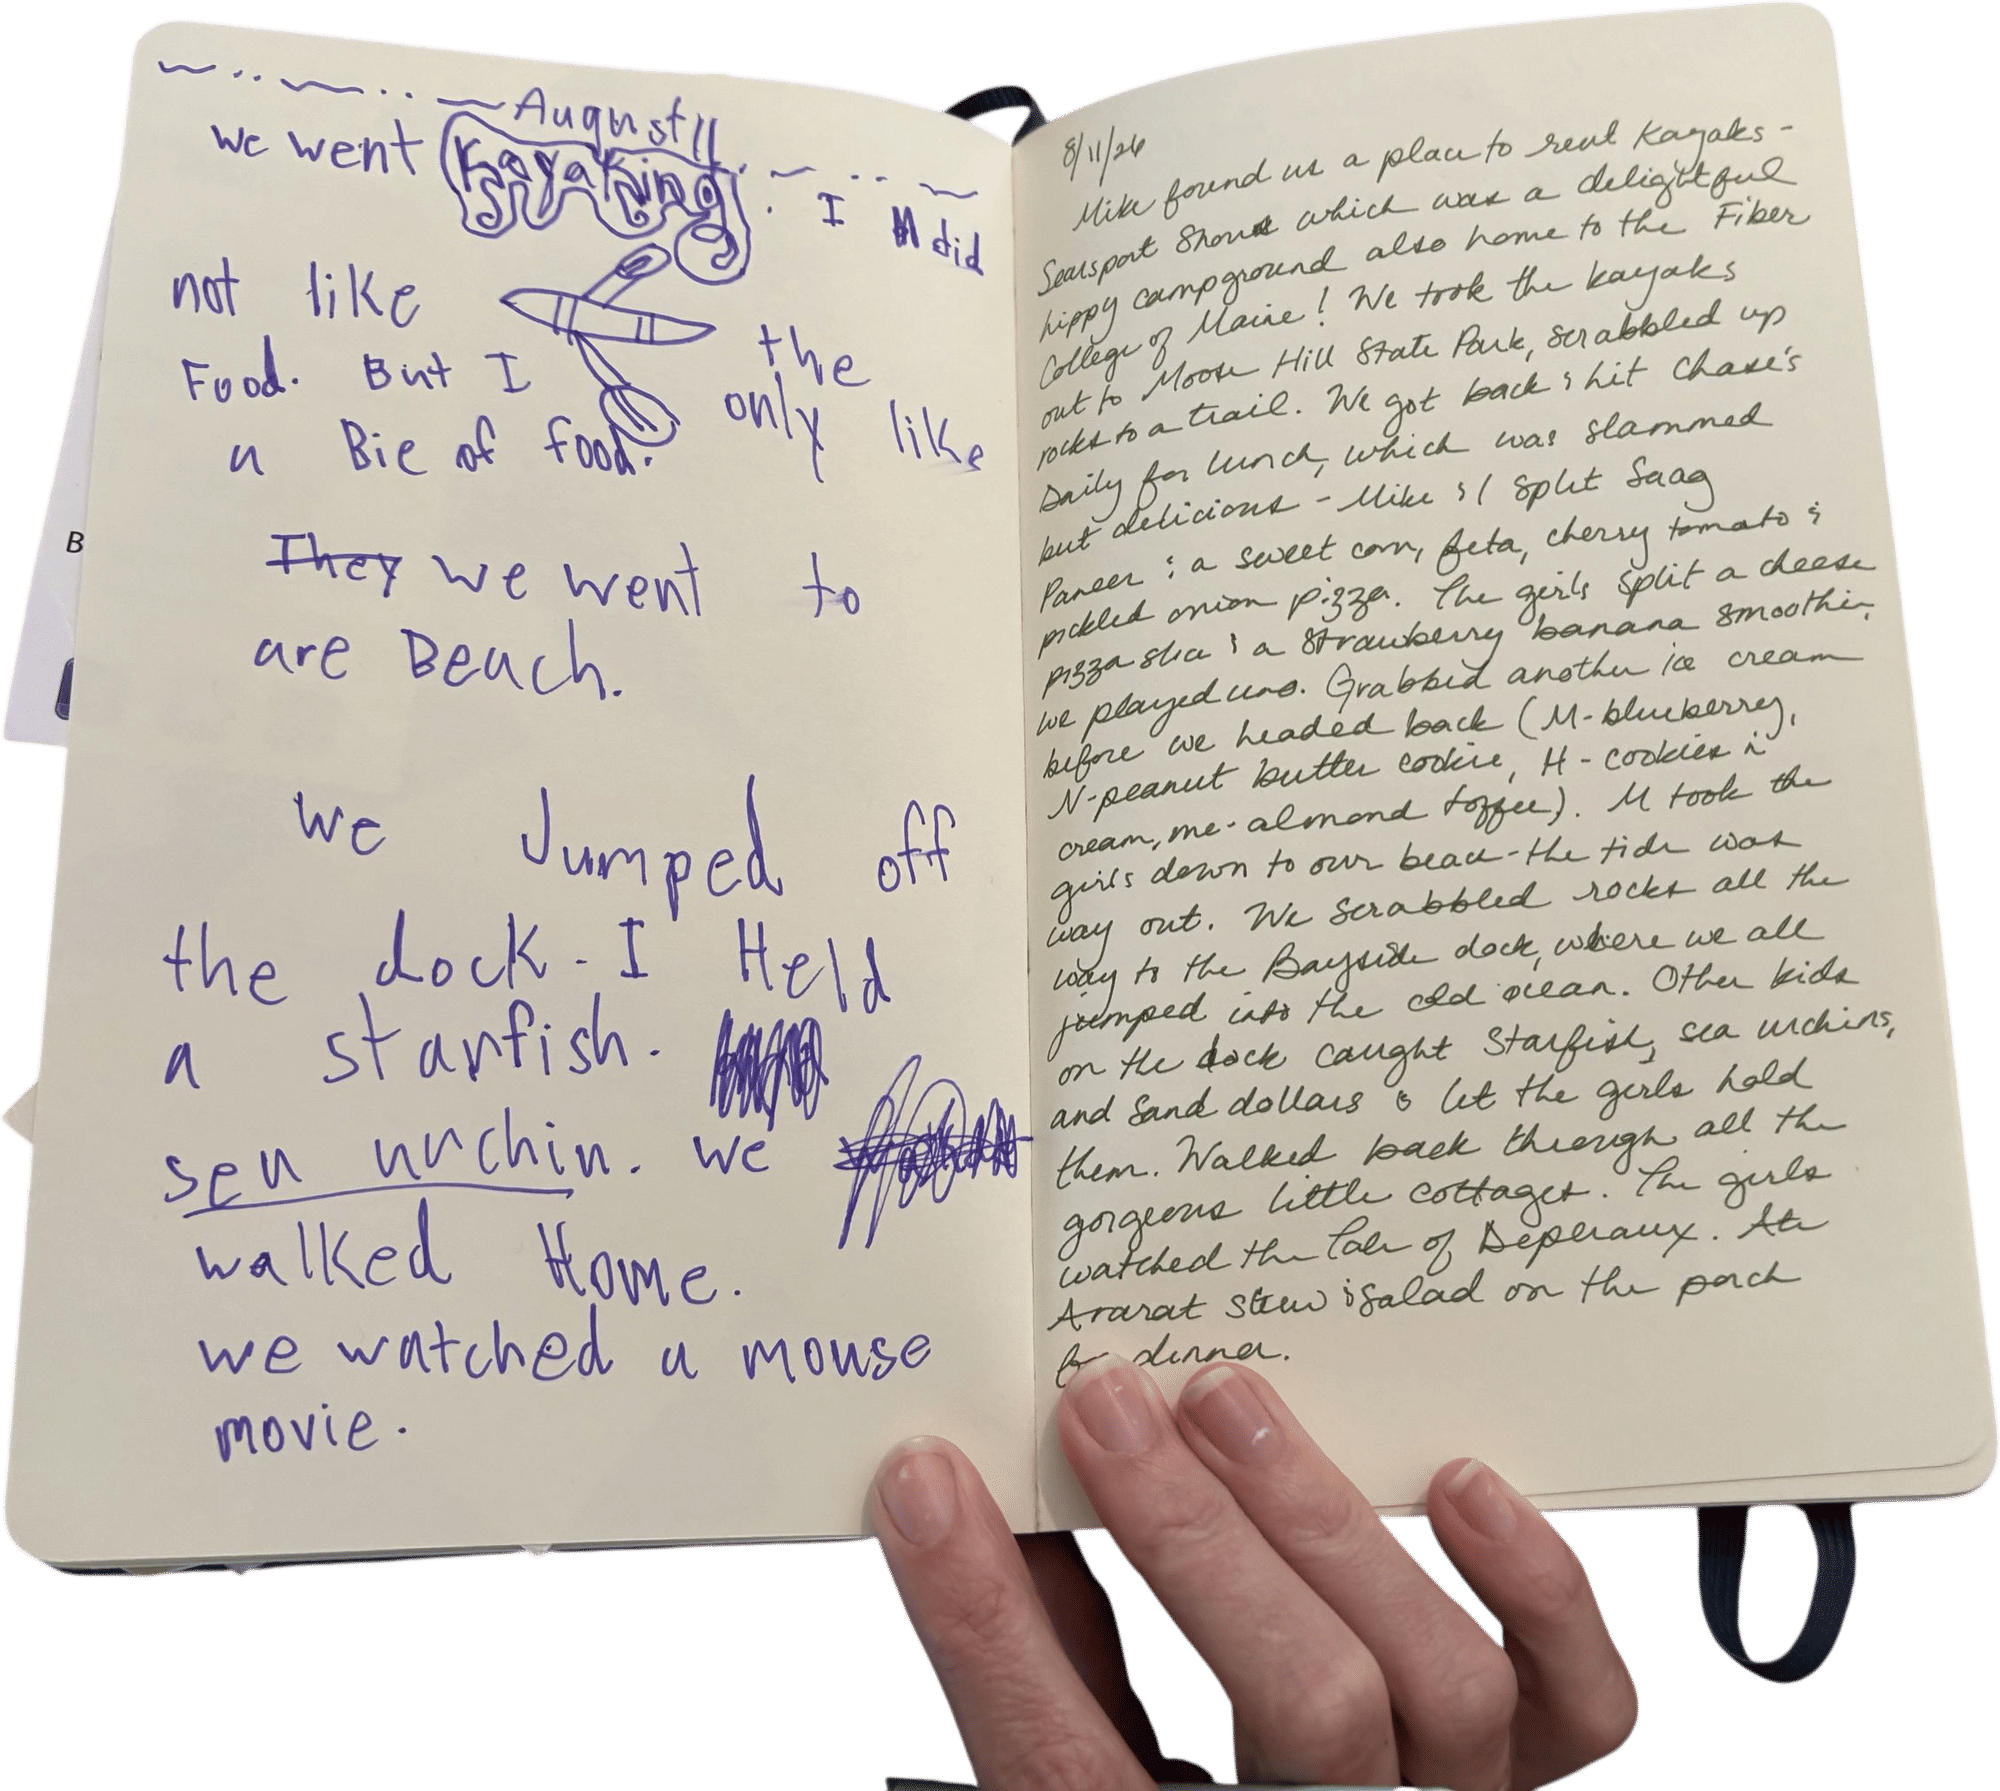 August 11
we went kayaking. I did
not like the
Food. But I only like
a Bie of food.
They we went to
are Beach.
we Jumped off
the dock. I Held
a starfish.
sea urchin. we
walked Home.
we watched a mouse
movie.
B
8/11/26
Mike found us a place to rent kayaks -
Searsport Shores which was a delightful
hippy campground also home to the Fiber
College of Maine! We took the kayaks
out to Moose Hill State Park, scrabbled up
rocks to a trail. We got back & hit Chase's
Daily for lunch, which was slammed
but delicious - Mike & I split Saag
Paneer & a sweet corn, feta, cherry tomato &
pickled onion pizza. The girls split a cheese
pizza slice & a strawberry banana smoothie,
we played uno. Grabbed another ice cream
before we headed back (M-blueberry,
N-peanut butter cookie, H-cookies n
cream, me-almond toffee). M took the
girls down to our beach-the tide was
way out. We scrabbled rocks all the
way to the Bayside dock, where we all
jumped into the cold ocean. Other kids
on the dock caught starfish, sea urchins,
and sand dollars & let the girls hold
them. Walked back through all the
gorgeous little cottages. The girls
watched the Tale of Depereaux. Ate
Ararat stew & salad on the porch
for dinner.